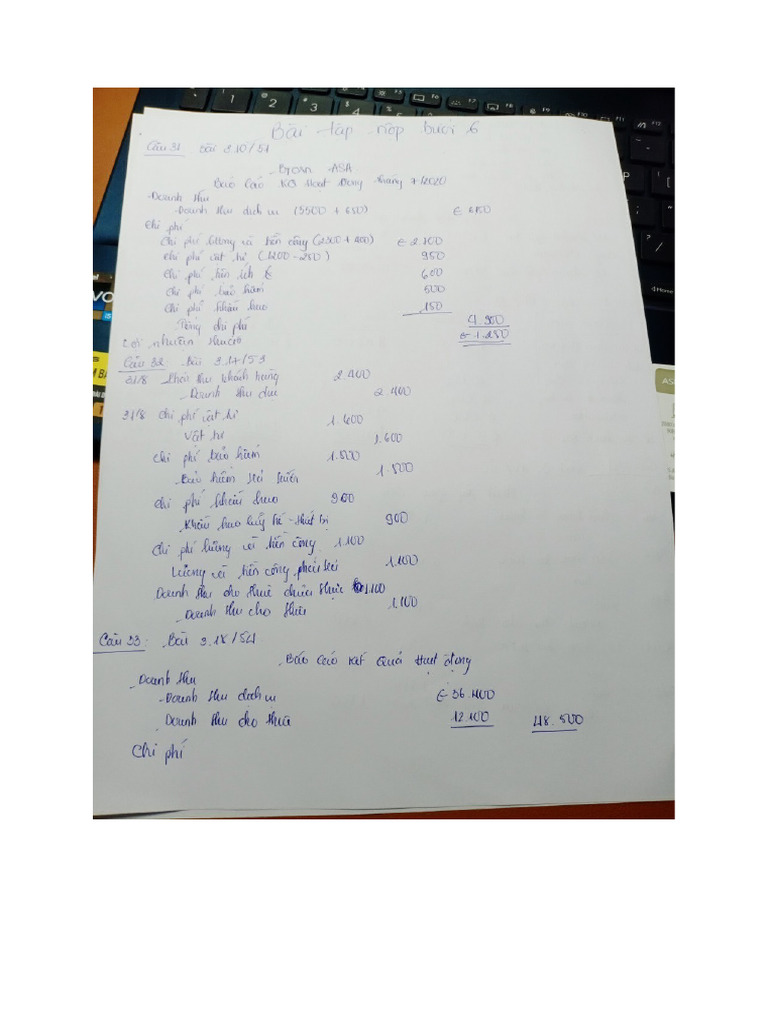 Bài tập nộp buổi 6
Câu 31 Bài 3.10/51
BTOAN ASA
Báo Cáo KQ Hoạt Động tháng 7/2020
Doanh thu
Doanh thu dịch vụ (5500 + 650) £ 6150
Chi phí
Chi phí lương và tiền công (2300 + 400) £ 2.700
Chi phí vật tư (1200 - 250) 950
Chi phí tiện ích £ 600
Chi phí bảo hiểm 500
Chi phí khấu hao 150
Tổng chi phí 4.900
Lợi nhuận thuần £ 1.250
Câu 32 Bài 3.17/53
31/8 Phải thu khách hàng 2.400
Doanh thu dvu 2.400
31/8 Chi phí vật tư 1.600
Vật tư 1.600
Chi phí bảo hiểm 1.500
Bảo hiểm trả trước 1.500
Chi phí khấu hao 900
Khấu hao luỹ kế - thiết bị 900
Chi phí lương và tiền công 1.100
Lương và tiền công phải trả 1.100
Doanh thu cho thuê chưa thực 1.100
Doanh thu cho thuê 1.100
Câu 33: Bài 3.18/54
Báo Cáo Kết Quả Hoạt động
Doanh thu
Doanh thu dịch vụ £ 36.400
Doanh thu cho thuê 12.100 48.500
Chi phí